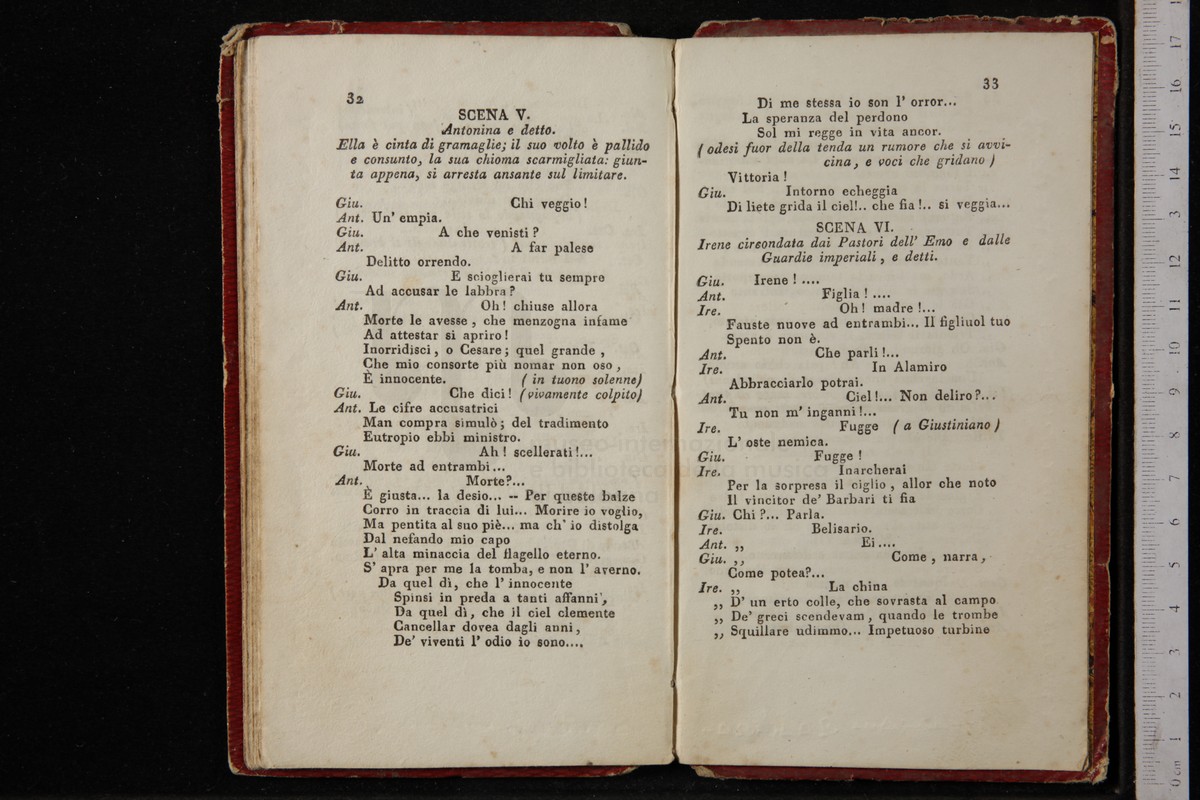 32
SCENA V.
Antonina e detto.
Ella è cinta di gramaglie; il suo volto è pallido
e consunto, la sua chioma scarmigliata: giun-
ta appena, si arresta ansante sul limitare.
Giu. Chi veggio!
Ant. Un' empia.
Giu. A che venisti?
Ant. A far palese
Delitto orrendo.
Giu. E scioglierai tu sempre
Ad accusar le labbra?
Ant. Oh! chiuse allora
Morte le avesse, che menzogna infame
Ad attestar si apriro!
Inorridisci, o Cesare; quel grande,
Che mio consorte più nomar non oso,
È innocente. (in tuono solenne)
Giu. Che dici! (vivamente colpito)
Ant. Le cifre accusatrici
Man compra simulò; del tradimento
Eutropio ebbi ministro.
Giu. Ah! scellerati!...
Morte ad entrambi...
Ant. Morte?...
È giusta... la desio... -- Per queste balze
Corro in traccia di lui... Morire io voglio,
Ma pentita al suo piè... ma ch' io distolga
Dal nefando mio capo
L' alta minaccia del flagello eterno.
S' apra per me la tomba, e non l' averno.
Da quel dì, che l' innocente
Spinsi in preda a tanti affanni,
Da quel dì, che il ciel clemente
Cancellar dovea dagli anni,
De' viventi l' odio io sono....
33
Di me stessa io son l' orror...
La speranza del perdono
Sol mi regge in vita ancor.
(odesi fuor della tenda un rumore che si avvi-
cina, e voci che gridano)
Vittoria!
Giu. Intorno echeggia
Di liete grida il ciel!.. che fia!.. si veggia...
SCENA VI.
Irene circondata dai Pastori dell' Emo e dalle
Guardie imperiali, e detti.
Giu. Irene!....
Ant. Figlia!....
Ire. Oh! madre!...
Fauste nuove ad entrambi... Il figliuol tuo
Spento non è.
Ant. Che parli!...
Ire. In Alamiro
Abbracciarlo potrai.
Ant. Ciel!... Non deliro?...
Tu non m' inganni!...
Ire. Fugge (a Giustiniano)
L' oste nemica.
Giu. Fugge!
Ire. Inarcherai
Per la sorpresa il ciglio, allor che noto
Il vincitor de' Barbari ti fia
Giu. Chi?... Parla.
Ire. Belisario.
Ant. ,, Ei....
Giu. ,, Come, narra,
Come potea?...
Ire. ,, La china
,, D' un erto colle, che sovrasta al campo
,, De' greci scendevam, quando le trombe
,, Squillare udimmo... Impetuoso turbine
museo internazionale
e biblioteca della musica
0 cm 1 2 3 4 5 6 7 8 9 10 11 12 13 14 15 16 17